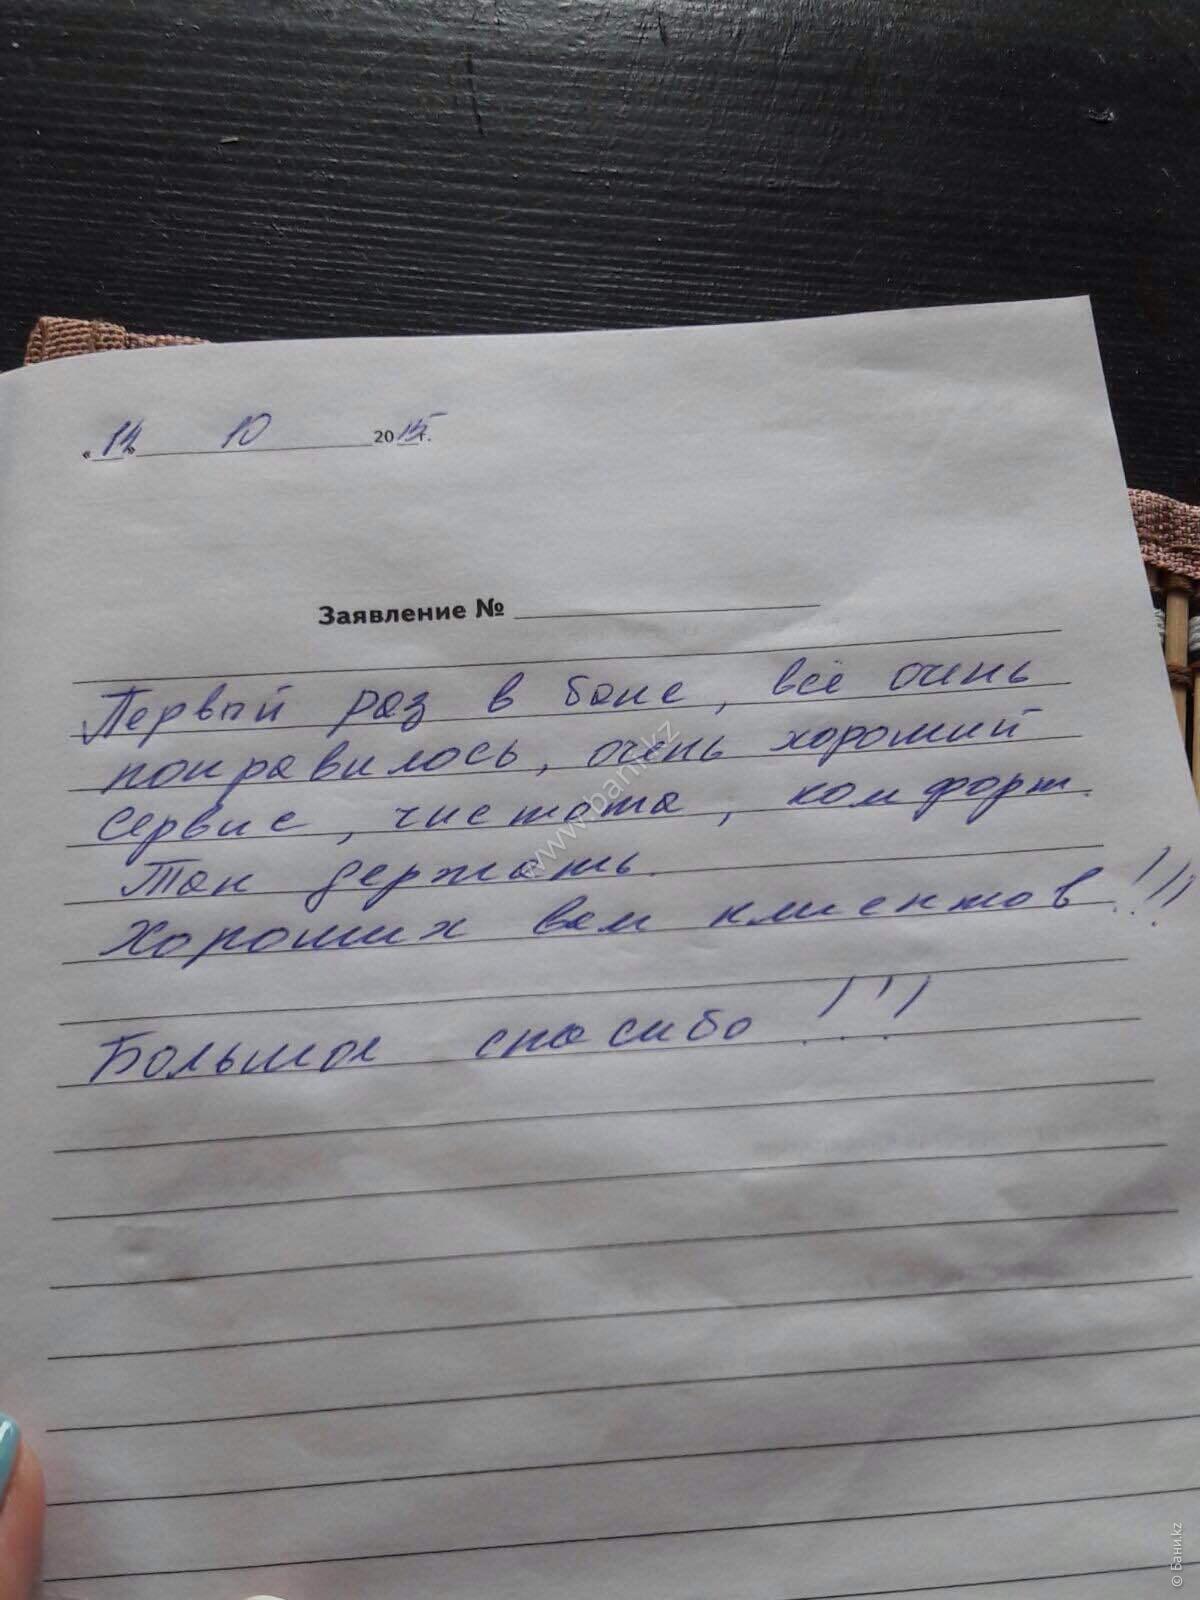 « » 10 2015г.
Заявление №
Первый раз в бане, всё очень
понравилось, очень хороший
сервис, чистота, комфорт.
Так держать.
Хороших вам клиентов!!!
Большое спасибо!!!
www.bani.kz
© Бани.kz